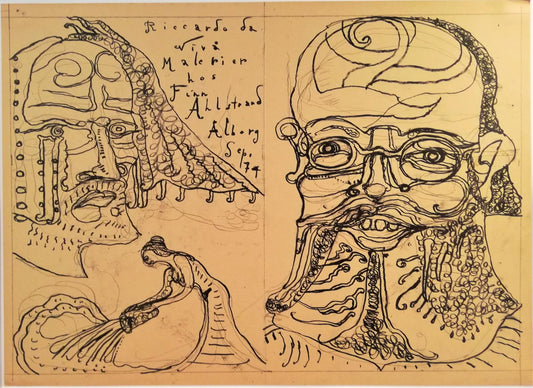 Riccardo da
vivi
Malerier
hos
Finn
Ahlstrand
Ålborg
Sep.
74